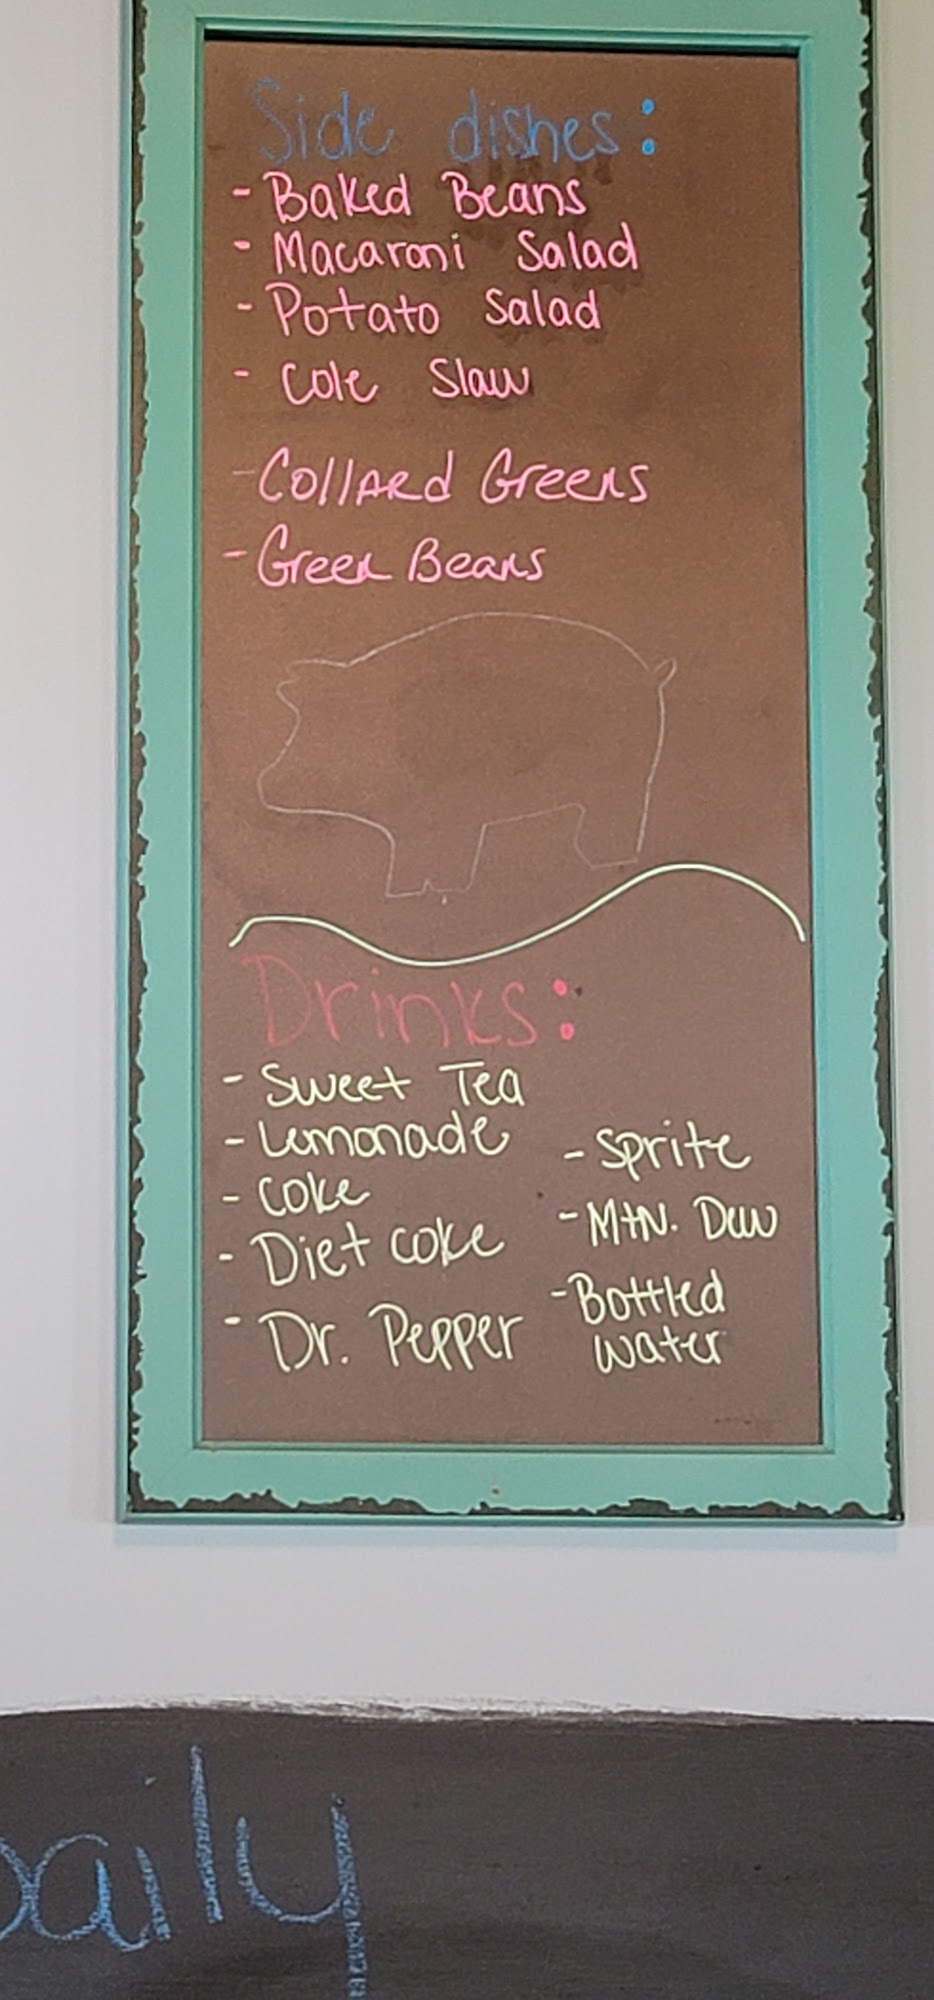 Side dishes:
- Baked Beans
- Macaroni Salad
- Potato Salad
- Cole Slaw
- Collard Greens
- Green Beans
Drinks:
- Sweet Tea
- Lemonade
- Coke
- Diet Coke
- Dr. Pepper
- Sprite
- Mtn. Dew
- Bottled
water
Daily